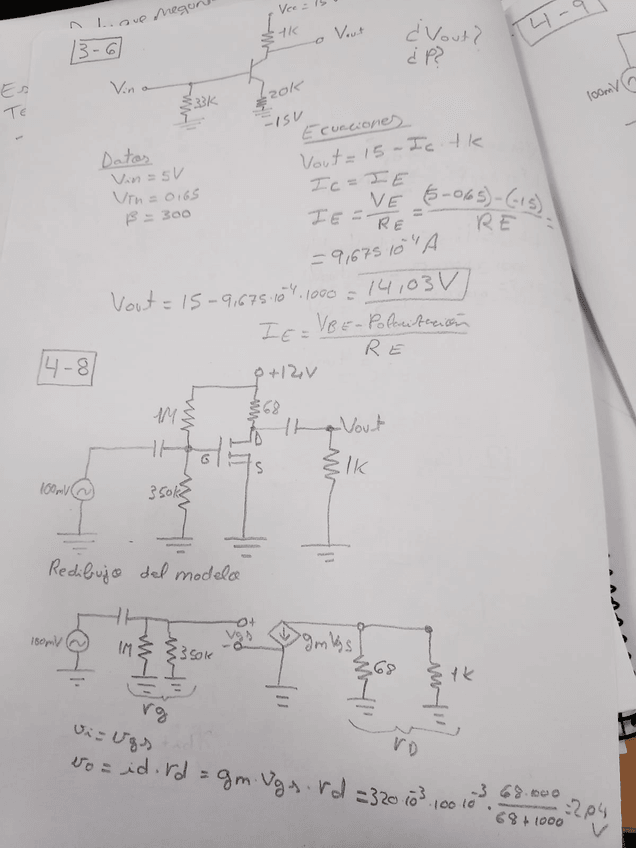 3-6
Vcc = 15
1k
Vout
¿Vout?
¿P?
Vin
33K
20k
-15V
4-9
100mV
Datos
Vin = 5V
VTh = 0,65
β = 300
Ecuaciones
Vout = 15 - Ic · 1k
Ic = IE
IE = VE / RE = (5-0,65)-(-15) / RE =
= 9,675 10⁻⁴ A
Vout = 15 - 9,675·10⁻⁴·1000 = 14,03V
IE = VBE - Polarización / RE
4-8
+12V
1M
68
Vout
G
D
S
1k
100mV
350k
Redibujo del modelo
100mV
1M
350k
+
Vgs
-
gmVgs
68
1k
rg
rD
vi = vgs
vo = id · rd = gm · Vgs · rd = 320 10⁻³ · 100 10⁻³ · 68·1000 / 68+1000 = 2,04 V